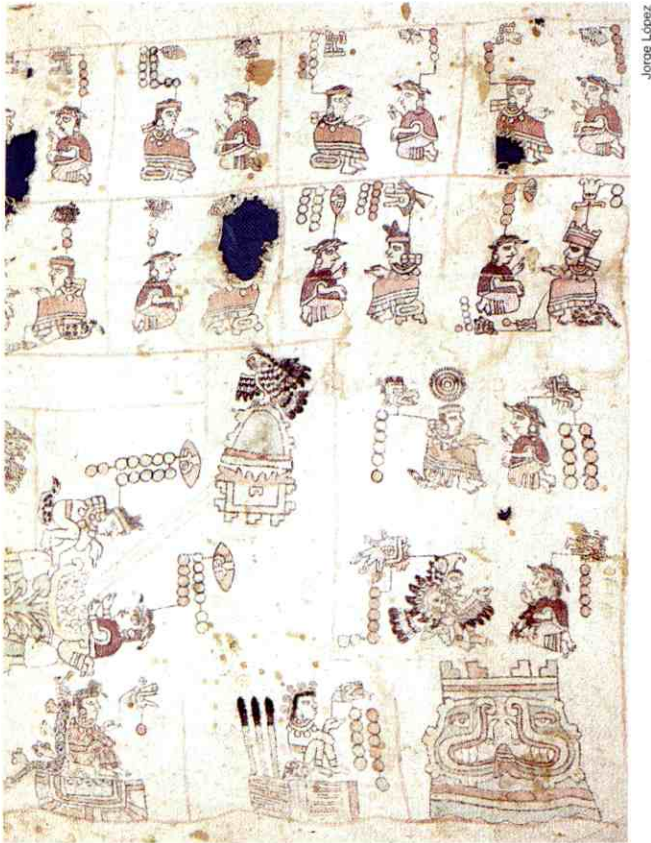 Jorge López